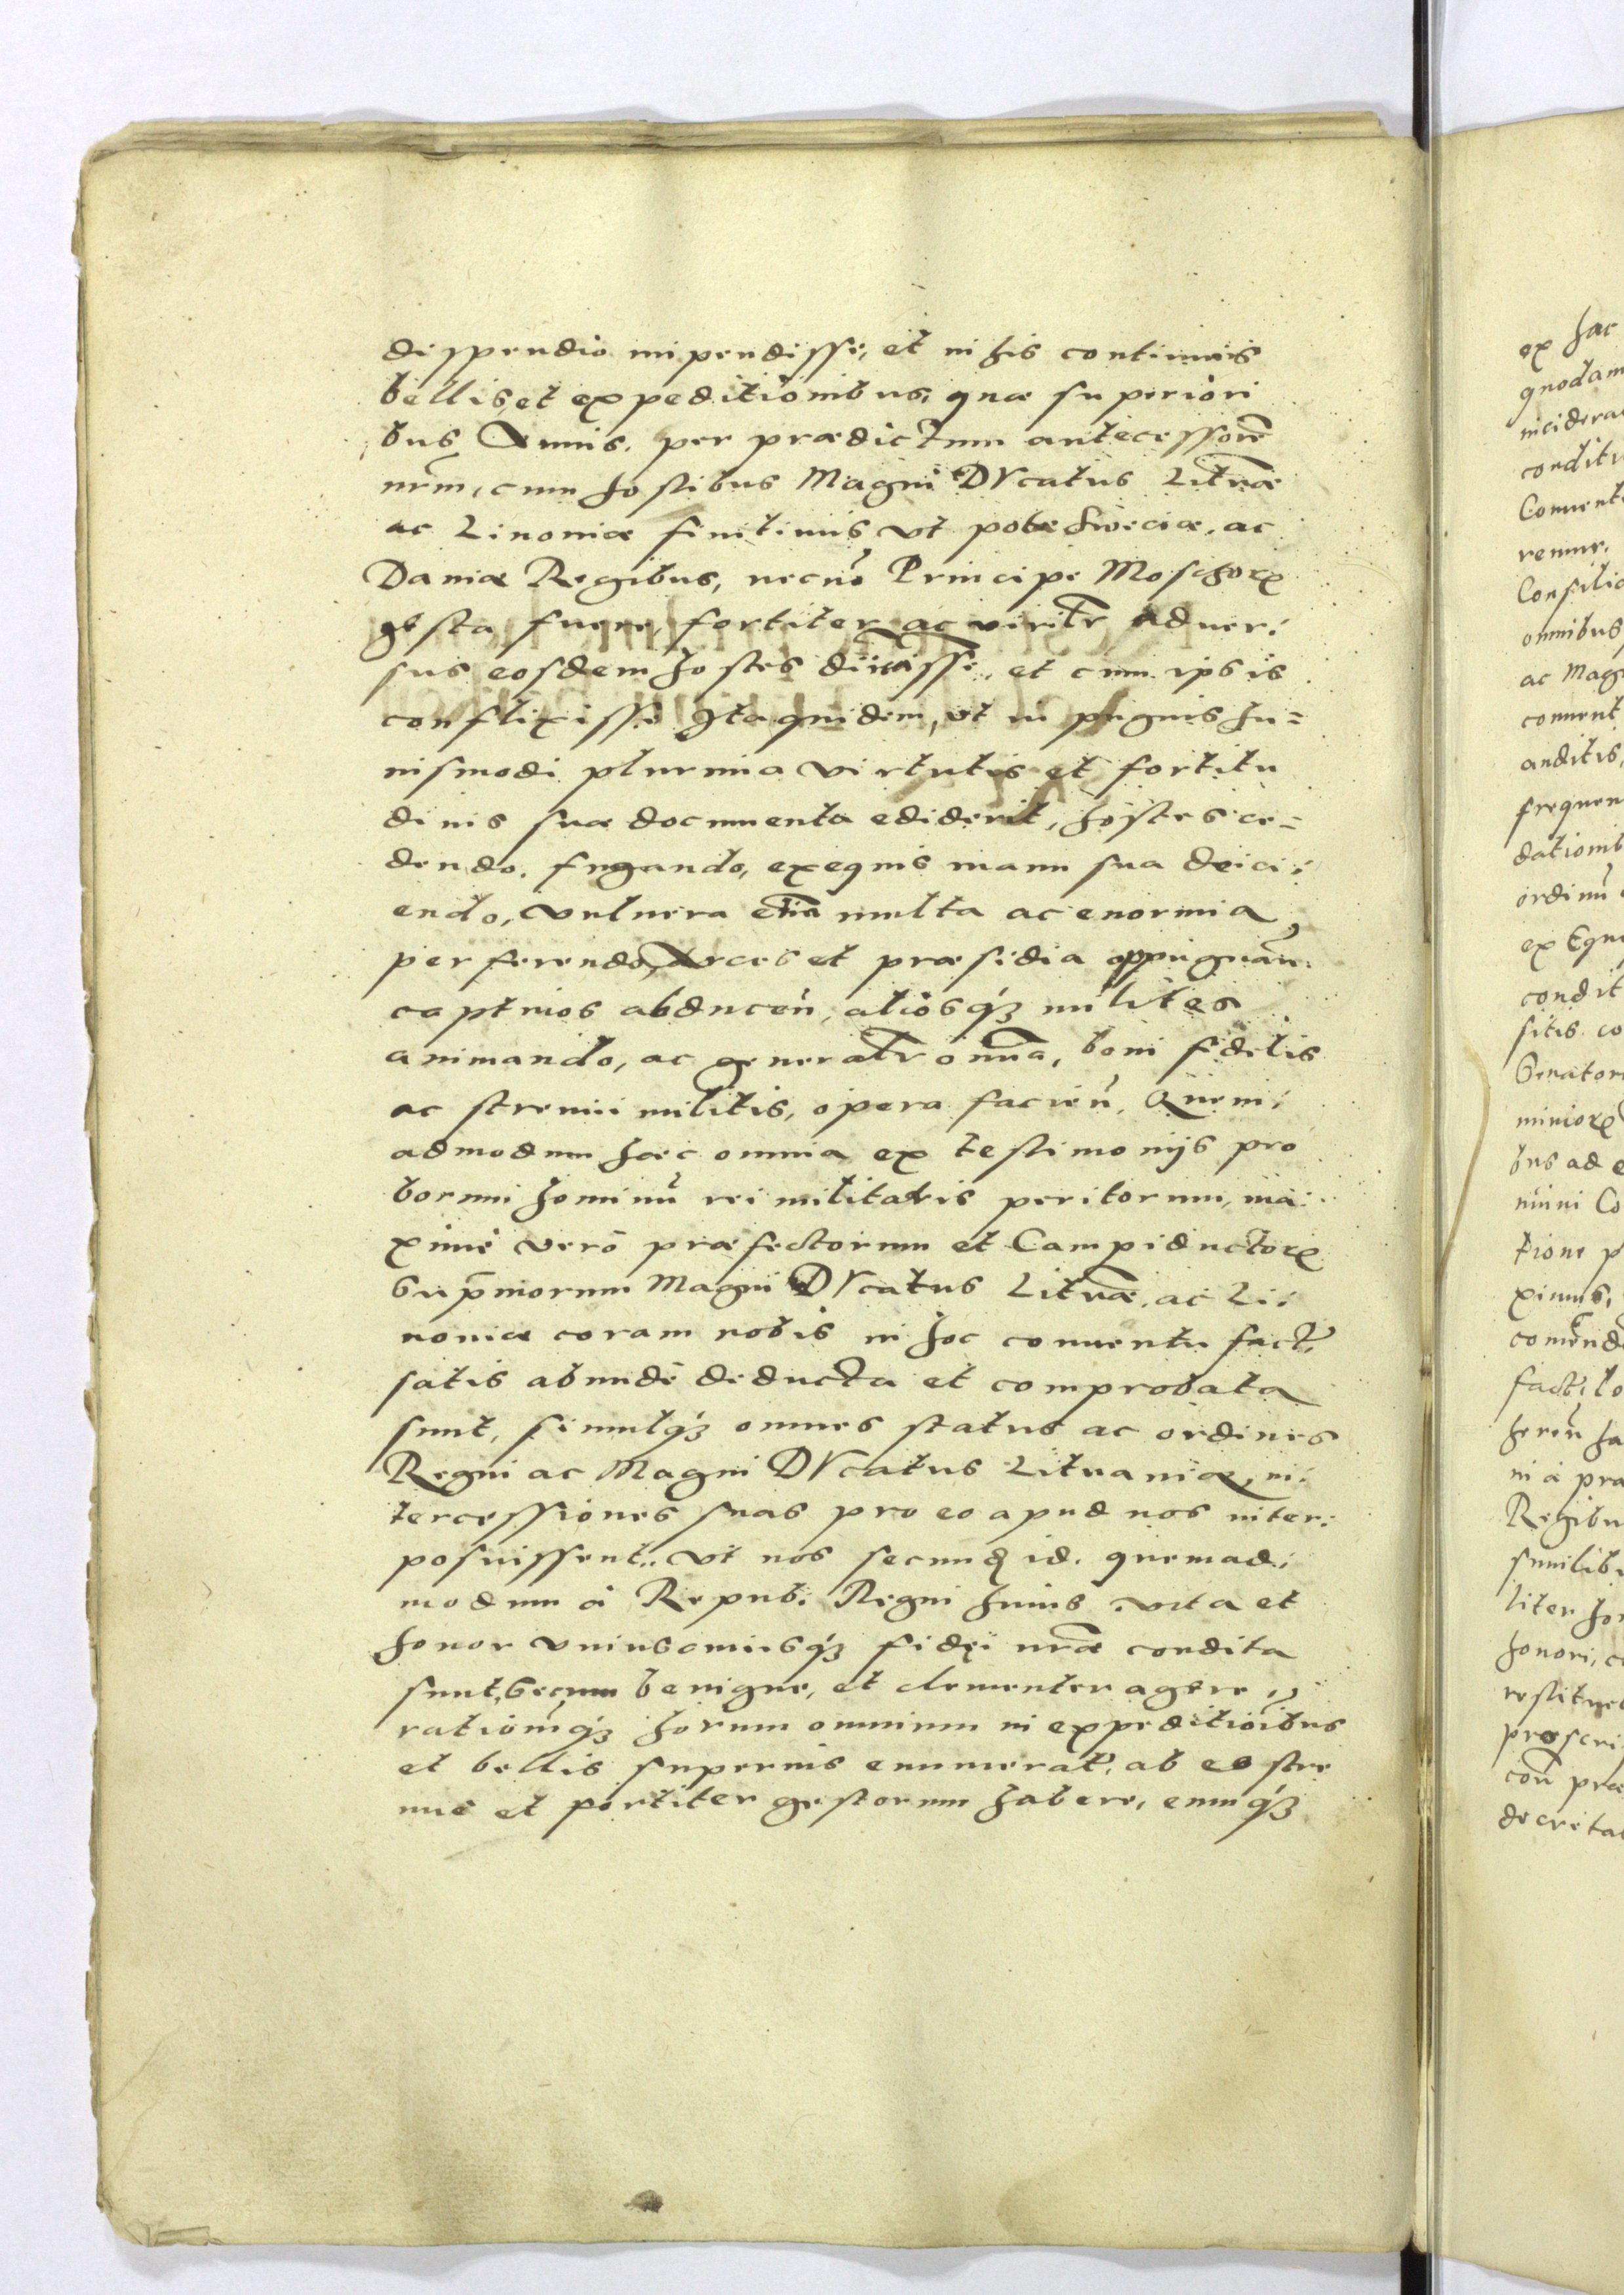 dispendio impendisse, et in his continuis
bellis, et expeditionibus, quæ superiori
bus Annis, per prædictum antecessorē
nrm̄, cum hostibus Magni DVcatus Lituāæ
ac Liuoniæ finitimis vt pote Sweciæ, ac
Daniæ Regibus, necnō Principe Moschorꝝ
gesta fuere, fortiter ac viriltr̄ aduer:
sus eosdem hostes dimicasse, et cum ipsis
conflixisse Ita quidem, vt in pugnis hu=
iusmodi plurima virtutis et fortitu
dinis suæ documenta ediderit, hostes cæ=
dendo, fugando, ex equis manu sua deici:
endo, vulnera etiā multa ac enormia
perferendo, Arces et præsidia oppugnan̄:
captiuos abducen̄, aliosqꝫ milites
animando, ac generaltr̄ omnia, boni fidelis
ac strenui militis, opera facien̄, Quem:
admodum hæc omnia ex testimonijs pro
borum hominū rei militaris peritorum, ma:
ximè verò præfectorum et Campiductorꝝ
Supr̄morum Magni DVcatus Lituāæ, ac Li:
uoniæ coram nobis in hoc conuentu fact:
satis abundè deducta et comprobata
sunt, simulqꝫ omnes status ac ordines
Regni ac Magni DVcatus Lituaniæ, in:
tercessiones suas pro eo apud nos inter:
posuissent, vt nos secund id, quemad:
modum à Repub: Regni huius vita et
honor vniuscuiusqꝫ fidei nr̄æ condita
sunt, Secum benigne, et clementer agere,
rationēqꝫ horum omnium in expeditiōibus
et bellis superius enumerat: ab eo stre
nuè et fortiter gestorum habere, eumqꝫ
ex hac
quodam
inciderat
Conuent
remur,
Consilio
omnibus
ac Mag
conuent
auditis,
frequen
dationib
ordinū
ex Equ
condit
sitis co
Senator
miniorꝝ
bus ad e
Co
tione p
ximus,
comēnd
fact: lo
ha
ni à præ
Regibu
similib
liter ho
honori, c
restitue
proscri
con̄ præ
decreta